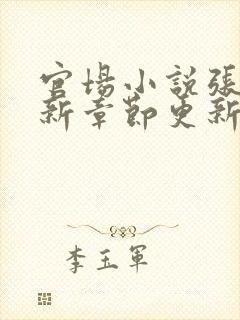 官場小說張
新章節更新
李玉軍